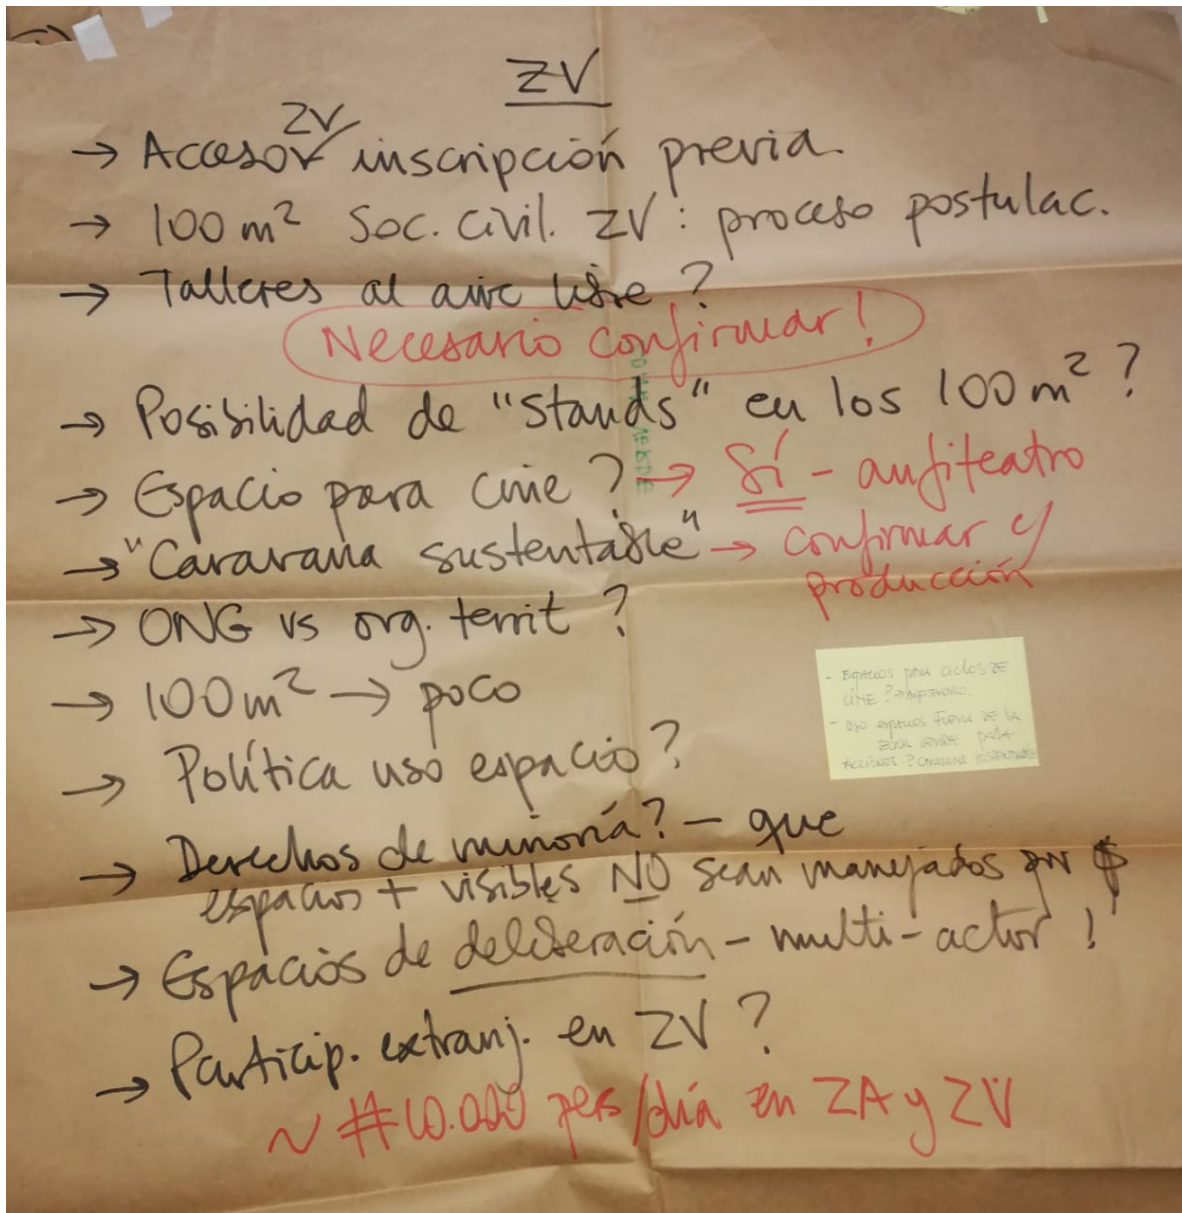 ZV
→ Acceso ZV inscripción previa.
→ 100 m² Soc. Civil. ZV: proceso postulac.
→ Talleres al aire libre?
Necesario confirmar!
→ Posibilidad de "stands" en los 100 m²?
→ Espacio para cine? → Sí - anfiteatro
→ "Caravana sustentable" → confirmar y
producción
→ ONG vs org. territ?
→ 100 m² → poco
→ Política uso espacio?
→ Derechos de minoría? - que
espacios + visibles NO sean manejados por $
→ Espacios de deliberación - multi-actor!
→ Particip. extranj. en ZV?
~ #10.000 pers/día en ZA y ZV
- ESPACIOS PARA CICLOS DE
CINE? → ANFITEATRO.
- USO ESPACIOS FUERA DE LA
ZONA VERDE PARA
ACCIONES? CARAVANA SUSTENTABLE